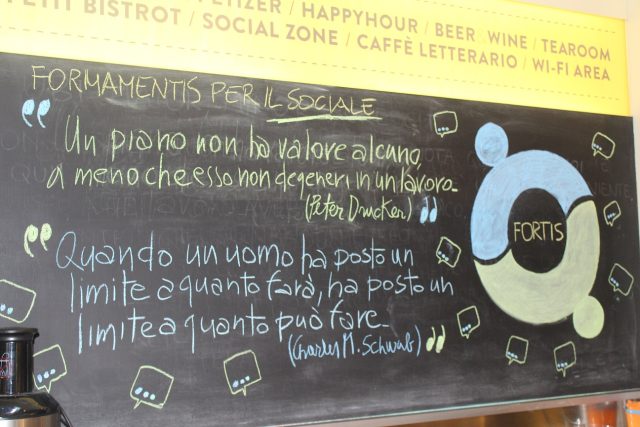 TIZER / HAPPYHOUR / BEER & WINE / TEAROOM
PETIT BISTROT / SOCIAL ZONE / CAFFÈ LETTERARIO / WI-FI AREA
FORMAMENTIS PER IL SOCIALE
" Un piano non ha valore alcuno,
a meno che esso non degeneri in un lavoro.
(Peter Drucker) "
" Quando un uomo ha posto un
limite a quanto farà, ha posto un
limite a quanto può fare.
(Charles M. Schwab) "
FORTIS